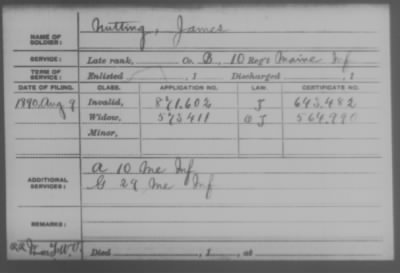 Nutting, James
NAME OF SOLDIER:
SERVICE: Late rank, Co. B, 10 Reg't Maine Inf
TERM OF SERVICE: Enlisted , 1 Discharged , 1
DATE OF FILING. CLASS. APPLICATION NO. LAW. CERTIFICATE NO.
1890, Aug 9 Invalid, 871.602 J 643.482
Widow, 573411 564.990
Minor,
A 10 Me Inf
ADDITIONAL SERVICES: G 29 Me Inf
REMARKS:
Died , 1 , at